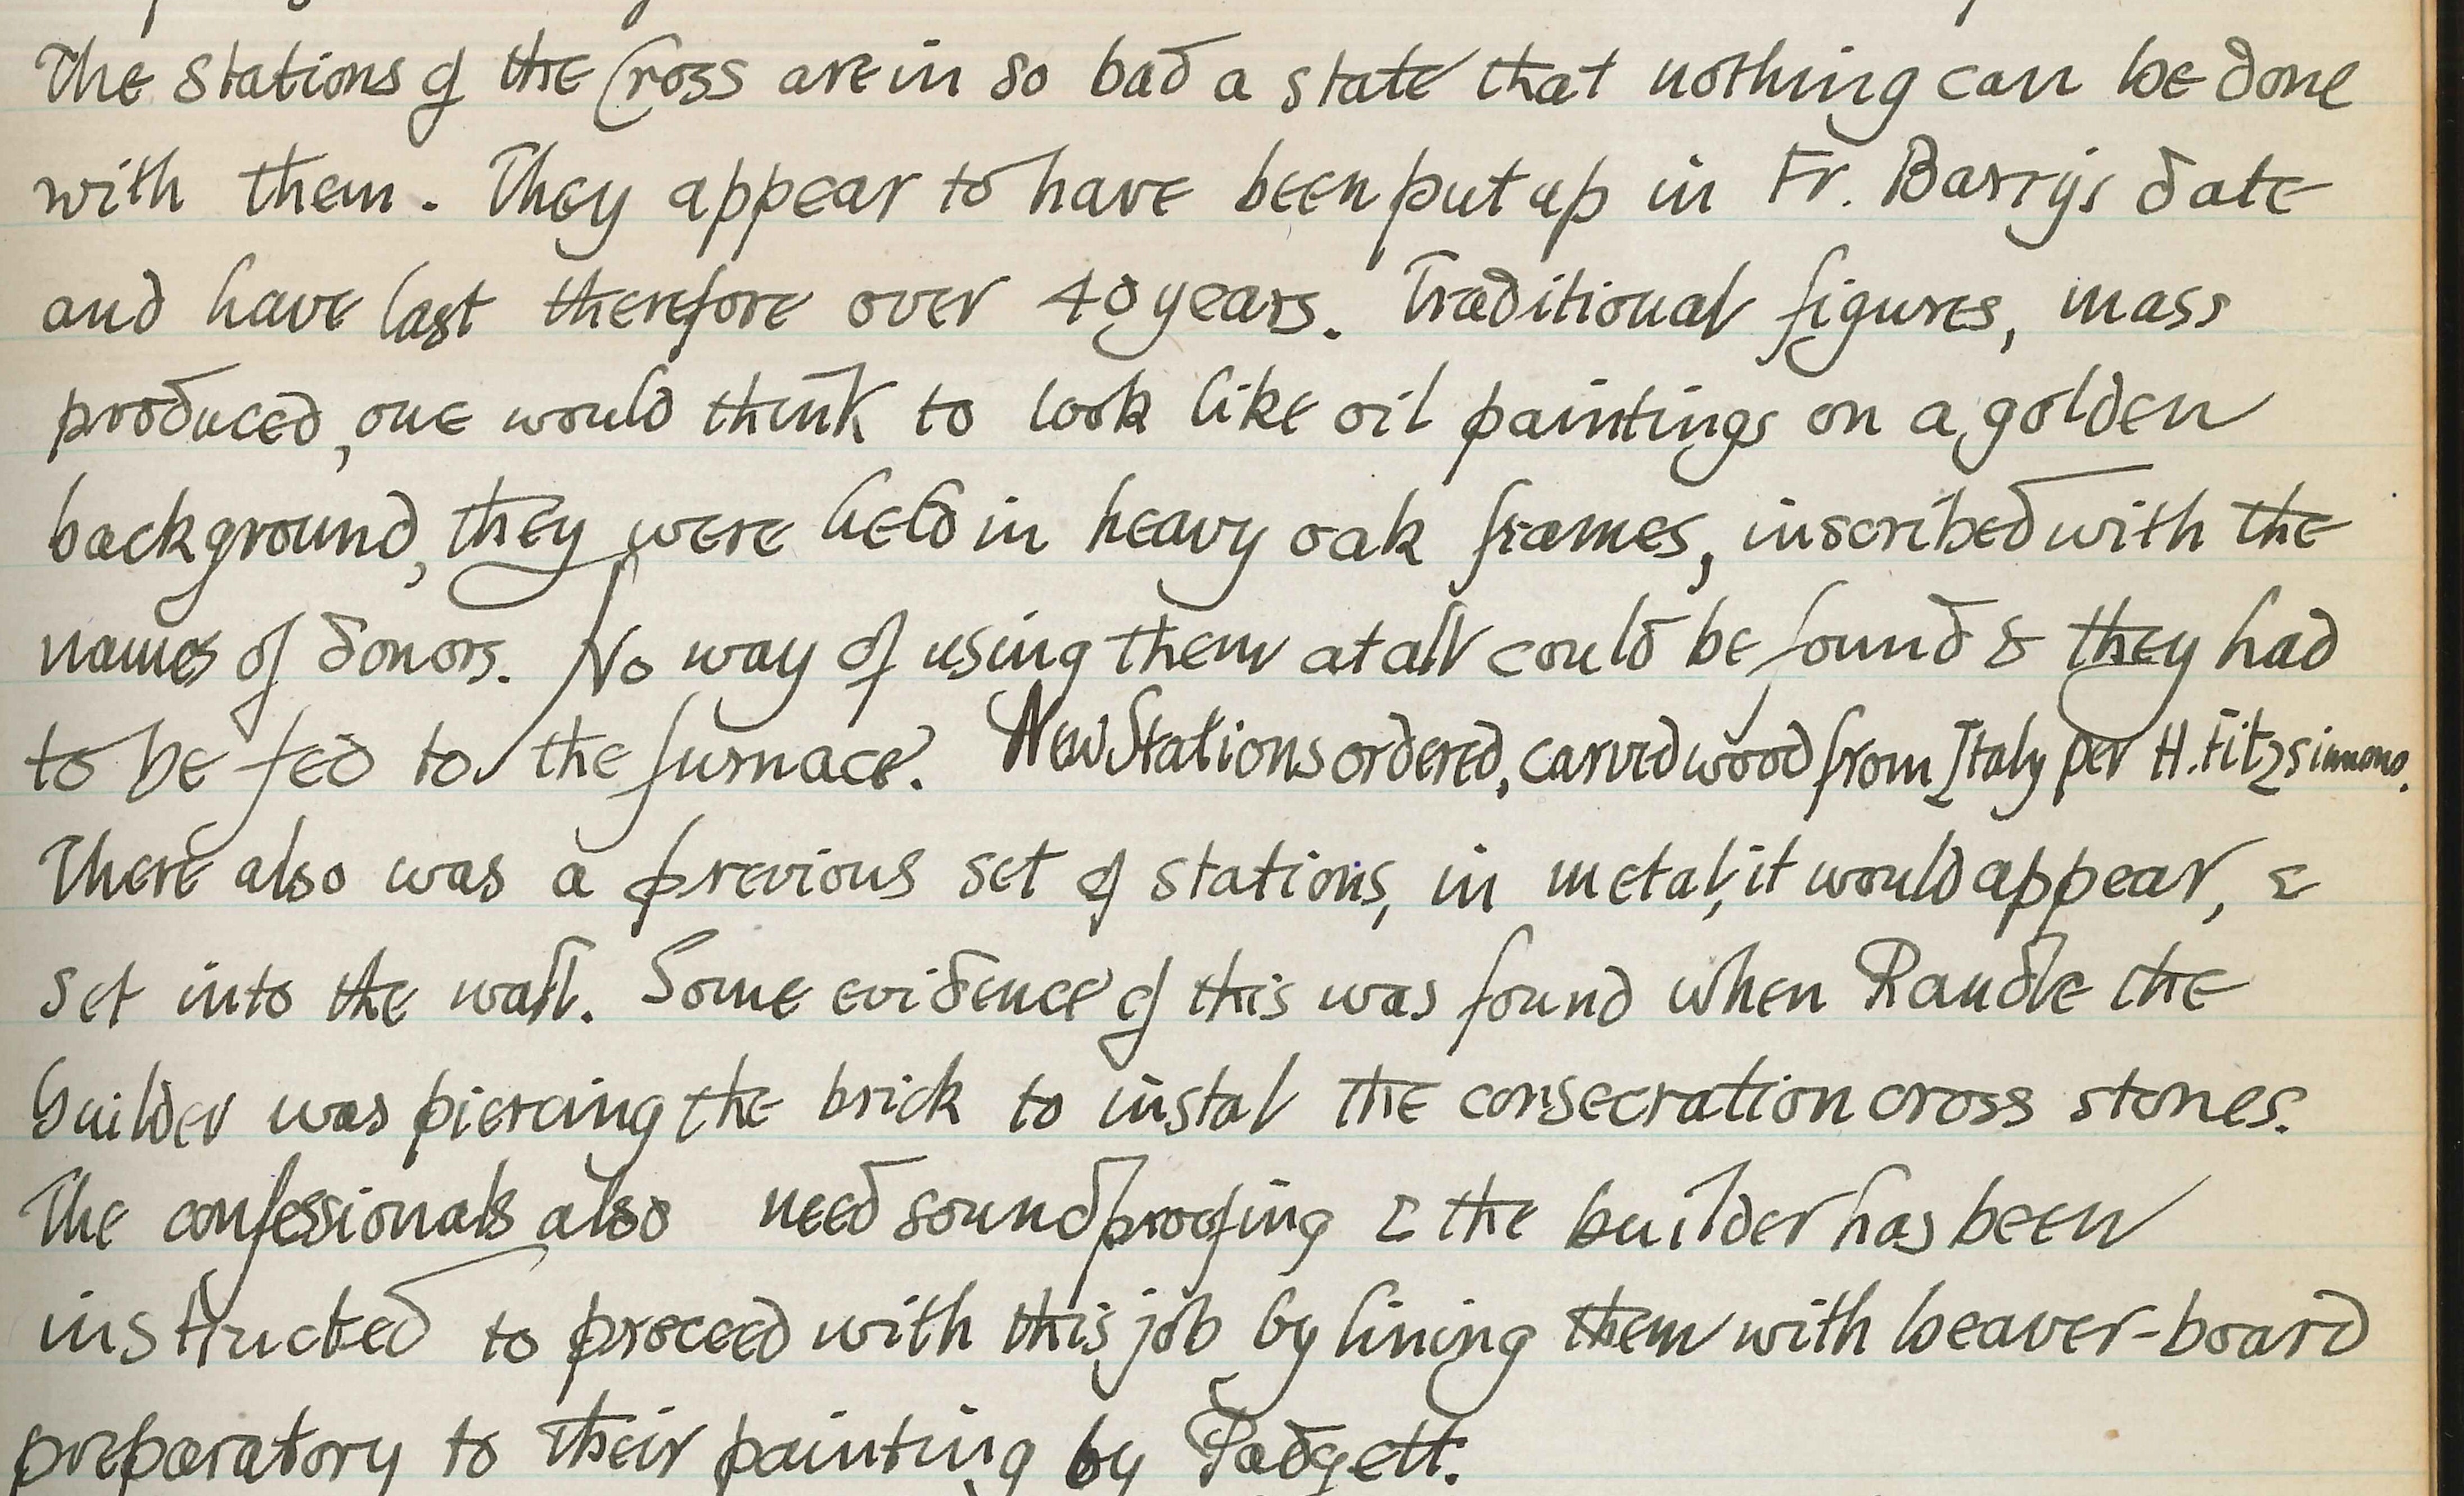 The Stations of the Cross are in so bad a state that nothing can be done
with them. They appear to have been put up in Fr. Barry's date
and have last therefore over 40 years. Traditional figures, mass
produced, one would think to look like oil paintings on a golden
background, they were held in heavy oak frames, inscribed with the
names of donors. No way of using them at all could be found & they had
to be fed to the furnace. New Stations ordered, carved wood from Italy per H. Fitzsimmons.
There also was a previous set of stations, in metal, it would appear, &
set into the wall. Some evidence of this was found when Randle the
builder was piercing the brick to instal the consecration cross stones.
The confessionals also need soundproofing & the builder has been
instructed to proceed with this job by lining them with beaver-board
preparatory to their painting by Padgett.